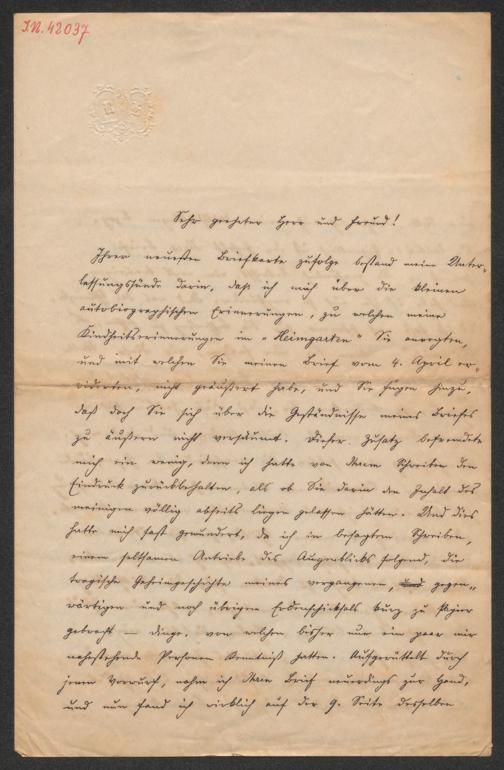 I.N. 42037
Sehr geehrter Herr und Freund!
Ihrer neuesten Briefkarte zufolge bestand meine Unter-
lassungssünde darin, daß ich mich über die kleinen
autobiographischen Erinnerungen, zu welchen meine
Kindheitserinnerungen im "Heimgarten" Sie anregten,
und mit welchen Sie meinen Brief vom 4. April er-
widerten, nicht geäußert habe, und Sie fügen hinzu,
daß doch Sie sich über die Geständnisse meines Briefes
zu äußern nicht versäumt. Dieser Zusatz befremdete
mich ein wenig, denn ich hatte von Ihrem Schreiben den
Eindruck zurückbehalten, als ob Sie darin den Inhalt des
meinigen völlig abseits liegen gelassen hätten. Und dies
hatte mich fast gewundert, da ich in besagtem Schreiben,
einem seltsamen Antriebe des Augenblicks folgend, die
tragische Geheimgeschichte meines vergangenen, gegen-
wärtigen und noch übrigen Erdenschicksals kurz zu Papier
gebracht — Dinge, von welchen bisher nur ein paar mir
nahestehende Personen Kenntniß hatten. Aufgerüttelt durch
jenen Vorwurf, nahm ich Ihren Brief neuerdings zur Hand,
und nun fand ich wirklich auf der 9. Seite desselben